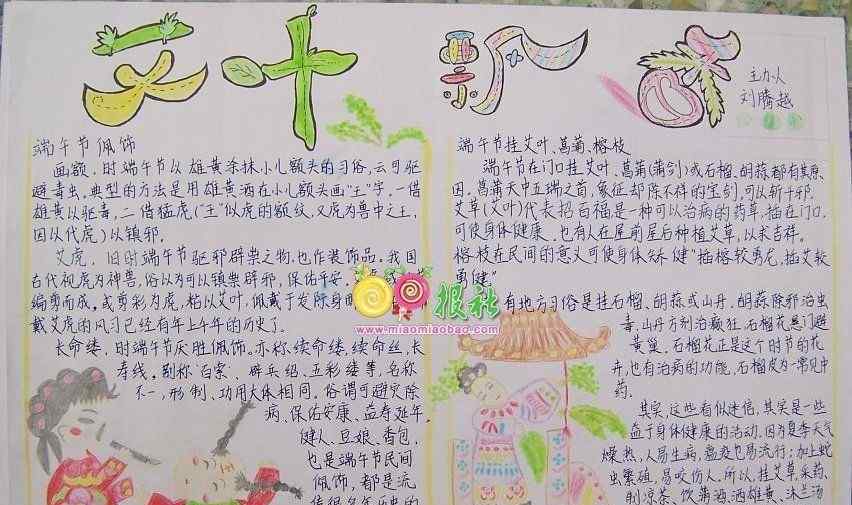 艾叶飘香
主办人
刘腾越
端午节佩饰
画额，时端午节以雄黄涂抹小儿额头的习俗，云可驱
避毒虫。典型的方法是用雄黄酒在小儿额头画"王"字，一借
雄黄以驱毒，二借猛虎("王"似虎的额纹，又虎为兽中之王，
因以代虎)以镇邪。
艾虎，旧时端午节驱邪辟祟之物，也作装饰品。我国
古代视虎为神兽，俗以为可以镇祟辟邪，保佑平安。
编剪而成，或剪彩为虎，粘以艾叶，佩戴于发际身
戴艾虎的风习已经有年上午年的历史了。
长命缕，时端午节厌胜佩饰。亦称续命缕，续命丝，长
寿线，别称"百索"、辟兵绍、五彩缕等，名称
不一，形制、功用大体相同。俗谓可避灾除
病、保佑安康、益寿延年。
健人、豆娘、香包，
也是端午节民间
佩饰，都是流
传很多年历史的
端午节挂艾叶、菖蒲、榕枝
端午节在门口挂艾叶、菖蒲(蒲剑)或石榴、胡蒜，都有其原
因。菖蒲天中五瑞之首，象征却除不祥的宝剑，可以斩千邪。
艾草(艾叶)代表招百福，是一种可以治病的药草，插在门口，
可使身体健康。也有人在屋前屋后种植艾草，以求吉祥。
榕枝在民间的意义可使身体矫健"插榕较勇龙，插艾较
勇健"
有地方习俗是挂石榴、胡蒜或山丹，胡蒜除邪治虫
毒，山丹方剂治癫狂。石榴花悬门避
黄巢，石榴花正是这个时节的花
卉，也有治病的功能，石榴皮为一常见中
药。
其实，这些看似迷信，其实是一些
益于身体健康的活动。因为夏季天气
燥热，人易生病，瘟疫也易流行；加上蛇
虫繁殖，易咬伤人，所以，挂艾草，采药，
制凉茶、饮蒲酒、洒雄黄、沐兰汤
报社
www.miaomiaobao.com